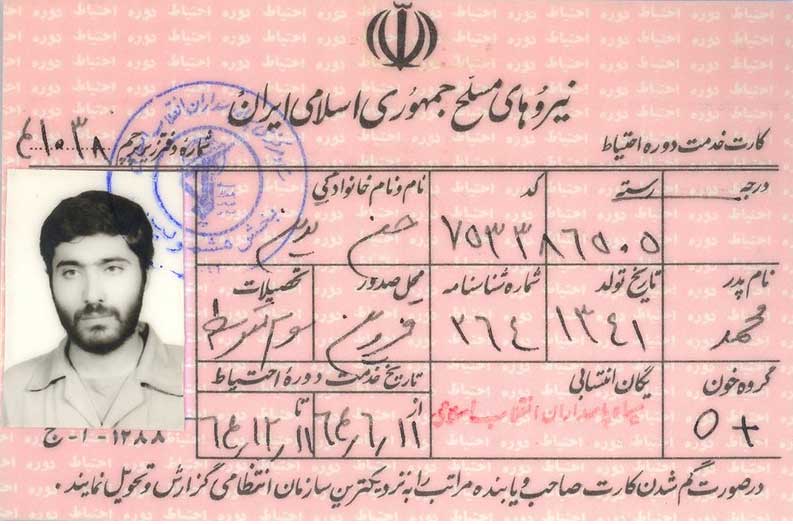 نیروهای مسلح جمهوری اسلامی ایران
کارت خدمت دوره احتیاط
شماره دفتر زیر پرچم
درجه رسته کد نام و نام خانوادگی
۷۵۳۳۸۶۵۰۵ حسن
نام پدر تاریخ تولد شماره شناسنامه محل صدور تحصیلات
محمد ۱۳۴۱ ۲۶۴ قزوین
گروه خون یگان انتسابی تاریخ خدمت دوره احتیاط
O+ سپاه پاسداران انقلاب اسلامی از ۶۴/۶/۱۱ تا ۶۴/۱۲/۱۱
۱۲۸۸-۱-ج
درصورت گم شدن کارت صاحب و یابنده مراتب را به نزدیکترین سازمان انتظامی گزارش و تحویل نمایند.